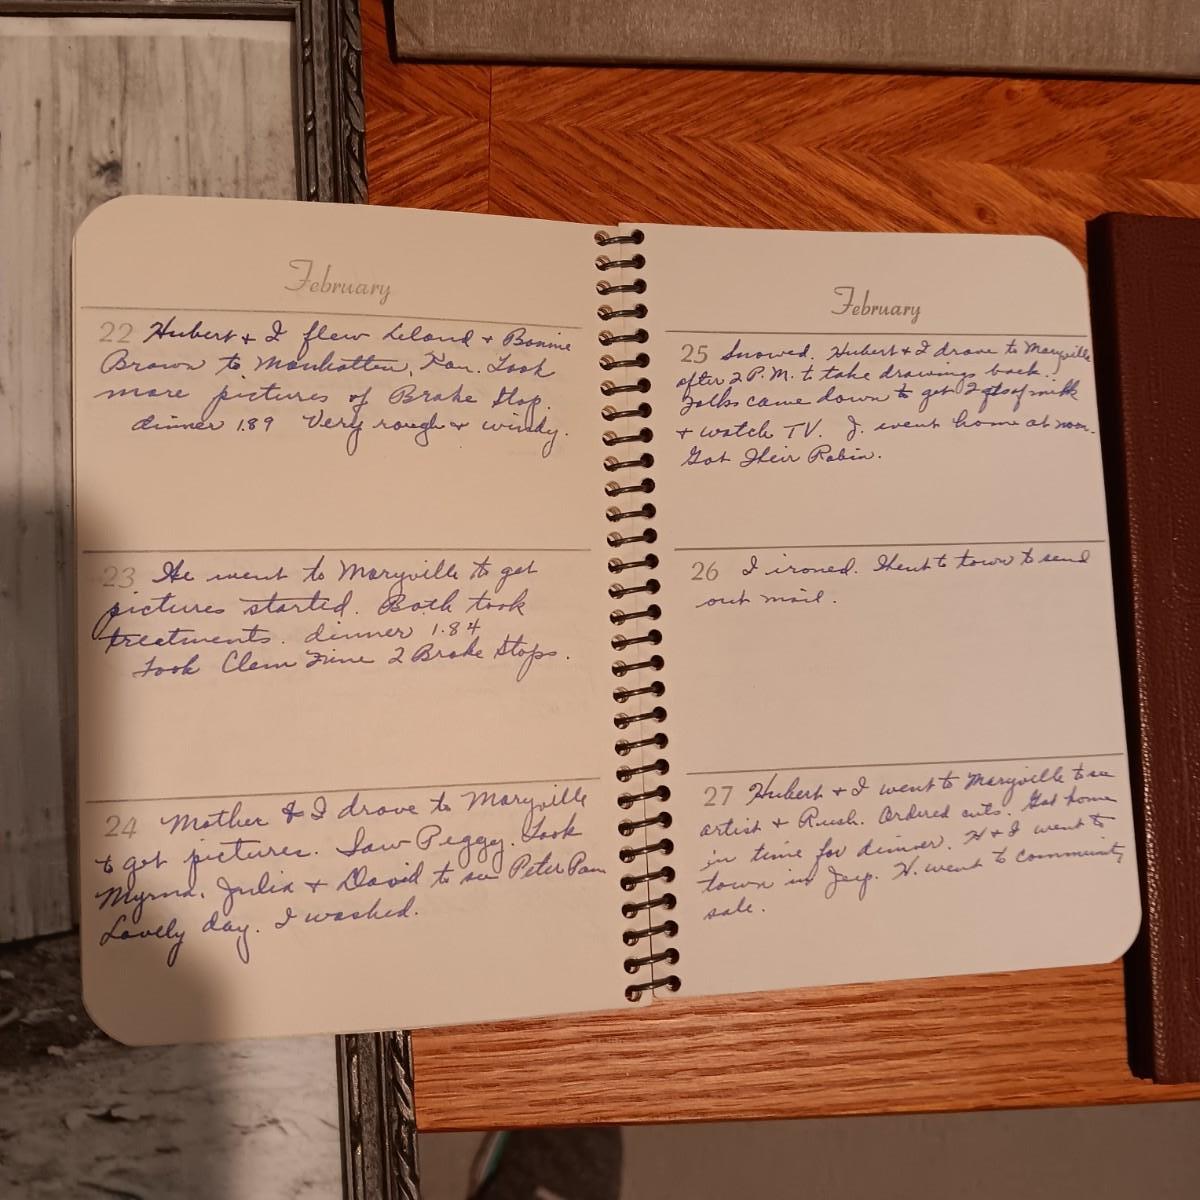 February
22 Hubert & I flew Leland & Bonnie
Brown to Manhattan, Kan. Took
more pictures of Brake Stop.
dinner 1.89 Very rough & windy.
23 He went to Maryville to get
pictures started. Both took
treatments. dinner 1.84
Took Clem Fine 2 Brake Stops.
24 Mother & I drove to Maryville
to get pictures. Saw Peggy. Took
Myrna, Julia & David to see Peter Pan
Lovely day. I washed.
February
25 Snowed. Hubert & I drove to Maryville
after 2 P.M. to take drawings back.
Folks came down to get 2 qts of milk
& watch TV. J. went home at noon.
Got Their Robin.
26 I ironed. Went to town to send
out mail.
27 Hubert & I went to Maryville to see
artist & Rush. Ordered cuts. Got home
in time for dinner. H & I went to
town in Jeep. H. went to community
sale.